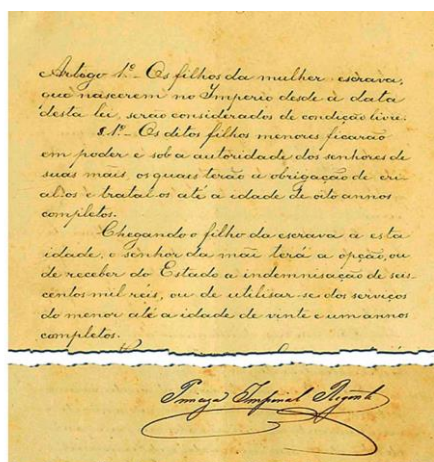 Artogo 1º_ Os filhos da mulher escrava,
que nascerem no Imperio desde a data
desta lei, serão considerados de condição livre.
§.1º_ Os ditos filhos menores ficarão
em poder e sob a autoridade dos senhores de
suas mais, os quaes terão a obrigação de cri
al-os e tratal-os até a idade de oito annos
completos.
Chegando o filho da escrava a esta
idade, o senhor da mãi terá a opção, ou
de receber do Estado a indemnisação de seis-
centos mil réis, ou de utilisar-se dos serviços
do menor até a idade de vinte e um annos
completos.
Princeza Imperial Regente